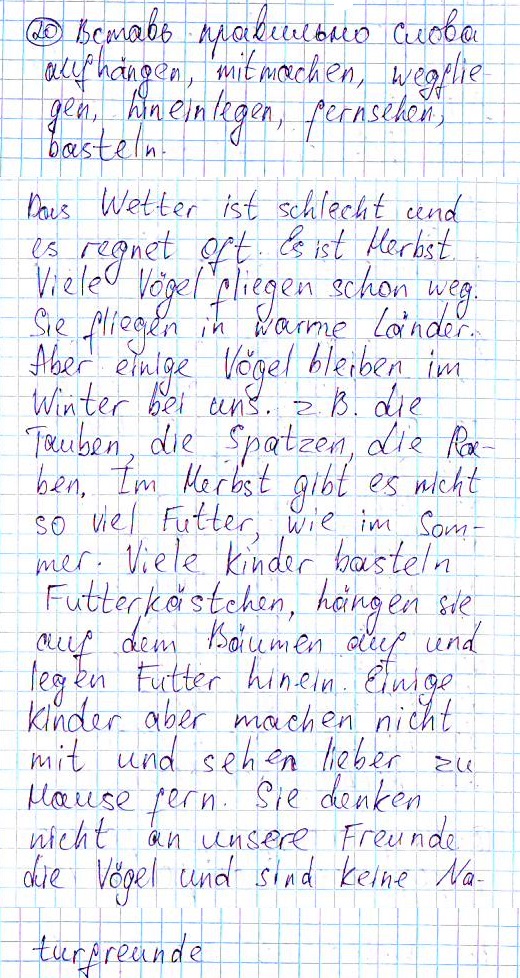 20 Вставь правильно слова
aufhängen, mitmachen, wegflie
gen, hineinlegen, fernsehen,
basteln.
Das Wetter ist schlecht und
es regnet oft. Es ist Herbst.
Viele Vögel fliegen schon weg.
Sie fliegen in warme Länder.
Aber einige Vögel bleiben im
Winter bei uns. z. B. die
Tauben, die Spatzen, die Ra-
ben. Im Herbst gibt es nicht
so viel Futter, wie im Som-
mer. Viele Kinder basteln
Futterkästchen, hängen sie
auf dem Bäumen auf und
legen Futter hinein. Einige
Kinder aber machen nicht
mit und sehen lieber zu
Hause fern. Sie denken
nicht an unsere Freunde
die Vögel und sind keine Na-
turfreunde